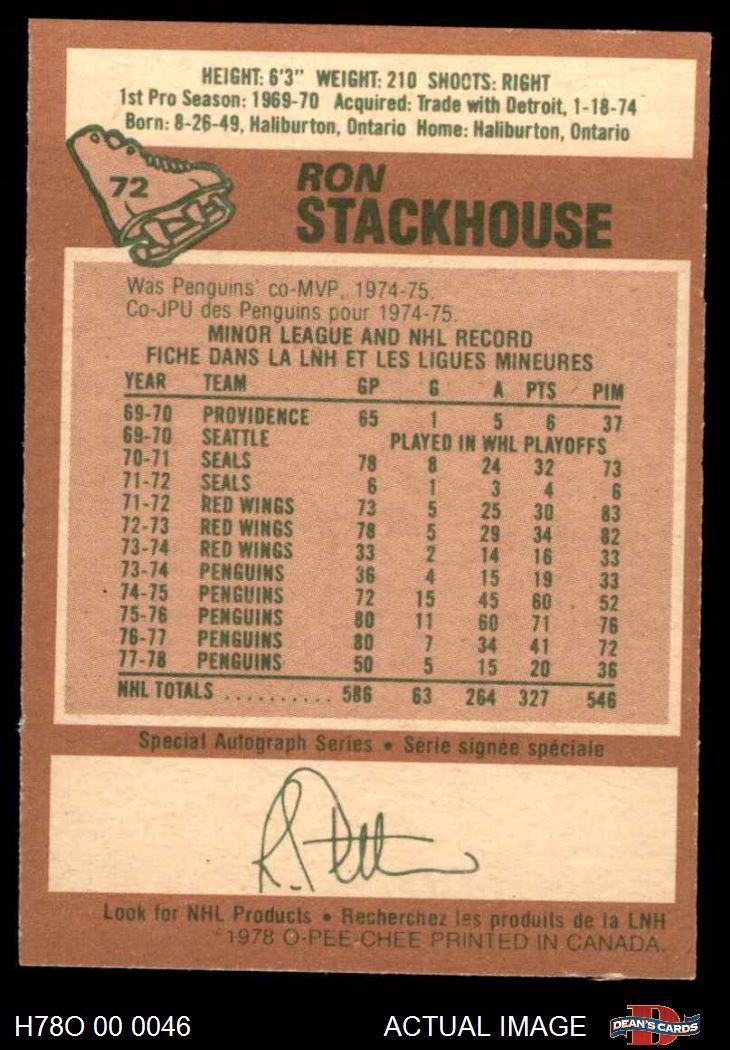 HEIGHT: 6'3" WEIGHT: 210 SHOOTS: RIGHT
1st Pro Season: 1969-70 Acquired: Trade with Detroit, 1-18-74
Born: 8-26-49, Haliburton, Ontario Home: Haliburton, Ontario
72
RON
STACKHOUSE
Was Penguins' co-MVP, 1974-75.
Co-JPU des Penguins pour 1974-75.
MINOR LEAGUE AND NHL RECORD
FICHE DANS LA LNH ET LES LIGUES MINEURES
YEAR TEAM GP G A PTS PIM
69-70 PROVIDENCE 65 1 5 6 37
69-70 SEATTLE PLAYED IN WHL PLAYOFFS
70-71 SEALS 78 8 24 32 73
71-72 SEALS 6 1 3 4 6
71-72 RED WINGS 73 5 25 30 83
72-73 RED WINGS 78 5 29 34 82
73-74 RED WINGS 33 2 14 16 33
73-74 PENGUINS 36 4 15 19 33
74-75 PENGUINS 72 15 45 60 52
75-76 PENGUINS 80 11 60 71 76
76-77 PENGUINS 80 7 34 41 72
77-78 PENGUINS 50 5 15 20 36
NHL TOTALS .......... 586 63 264 327 546
Special Autograph Series • Série signée spéciale
Look for NHL Products • Recherchez les produits de la LNH
1978 O-PEE-CHEE PRINTED IN CANADA.
H78O 00 0046 ACTUAL IMAGE DEAN'S CARDS